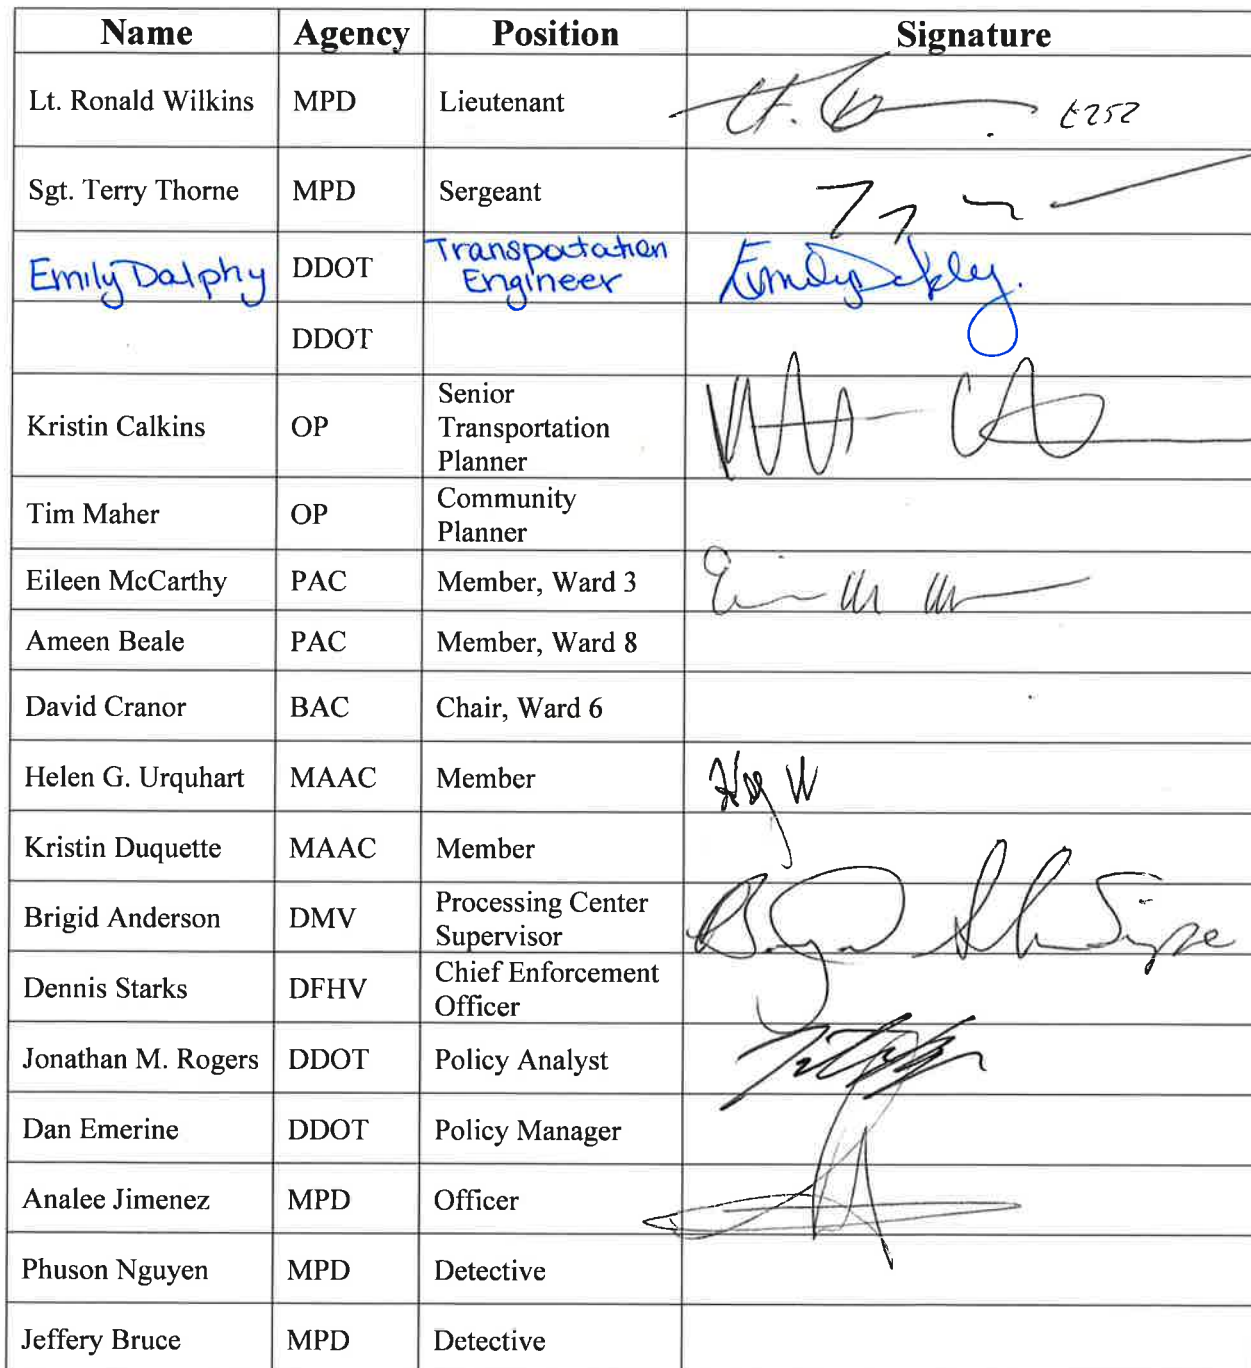 Name Agency Position Signature
Lt. Ronald Wilkins MPD Lieutenant E252
Sgt. Terry Thorne MPD Sergeant
Emily Dalphy DDOT Transportation
Engineer
DDOT
Kristin Calkins OP Senior
Transportation
Planner
Tim Maher OP Community
Planner
Eileen McCarthy PAC Member, Ward 3
Ameen Beale PAC Member, Ward 8
David Cranor BAC Chair, Ward 6
Helen G. Urquhart MAAC Member
Kristin Duquette MAAC Member
Brigid Anderson DMV Processing Center
Supervisor
Dennis Starks DFHV Chief Enforcement
Officer
Jonathan M. Rogers DDOT Policy Analyst
Dan Emerine DDOT Policy Manager
Analee Jimenez MPD Officer
Phuson Nguyen MPD Detective
Jeffery Bruce MPD Detective